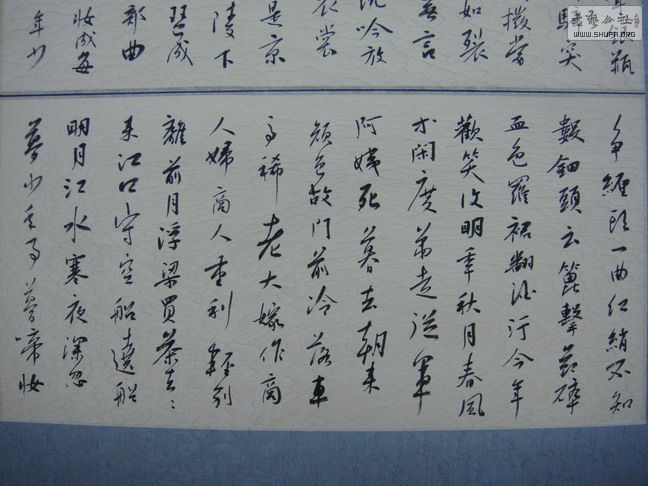 銀瓶
突
撥當
如裂
無言
沉吟放
衣裳
是京
陵下
琶成
部曲
妝成每
年少
爭纏頭一曲紅綃不知
數鈿頭云篦擊節碎
血色羅裙翻酒汙今年
歡笑復明年秋月春風
等閑度弟走從軍
阿姨死暮去朝來
顏色故門前冷落車
馬稀老大嫁作商
人婦商人重利輕別
離前月浮梁買茶去〻
來江口守空船遶船
明月江水寒夜深忽
夢少年事夢啼妝
WWW.SHUFA.ORG